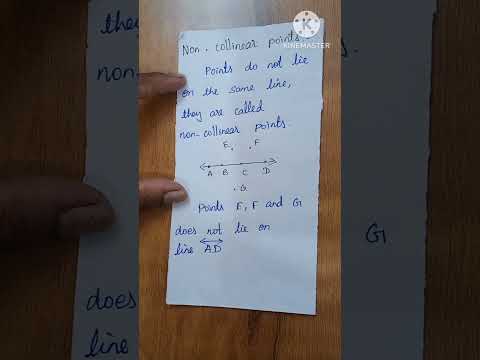 KINEMASTER
Non-collinear points:
Points do not lie
on the same line,
they are called
non-collinear points.
E F
A B C D
G
Points E, F and G
does not lie on
line AD